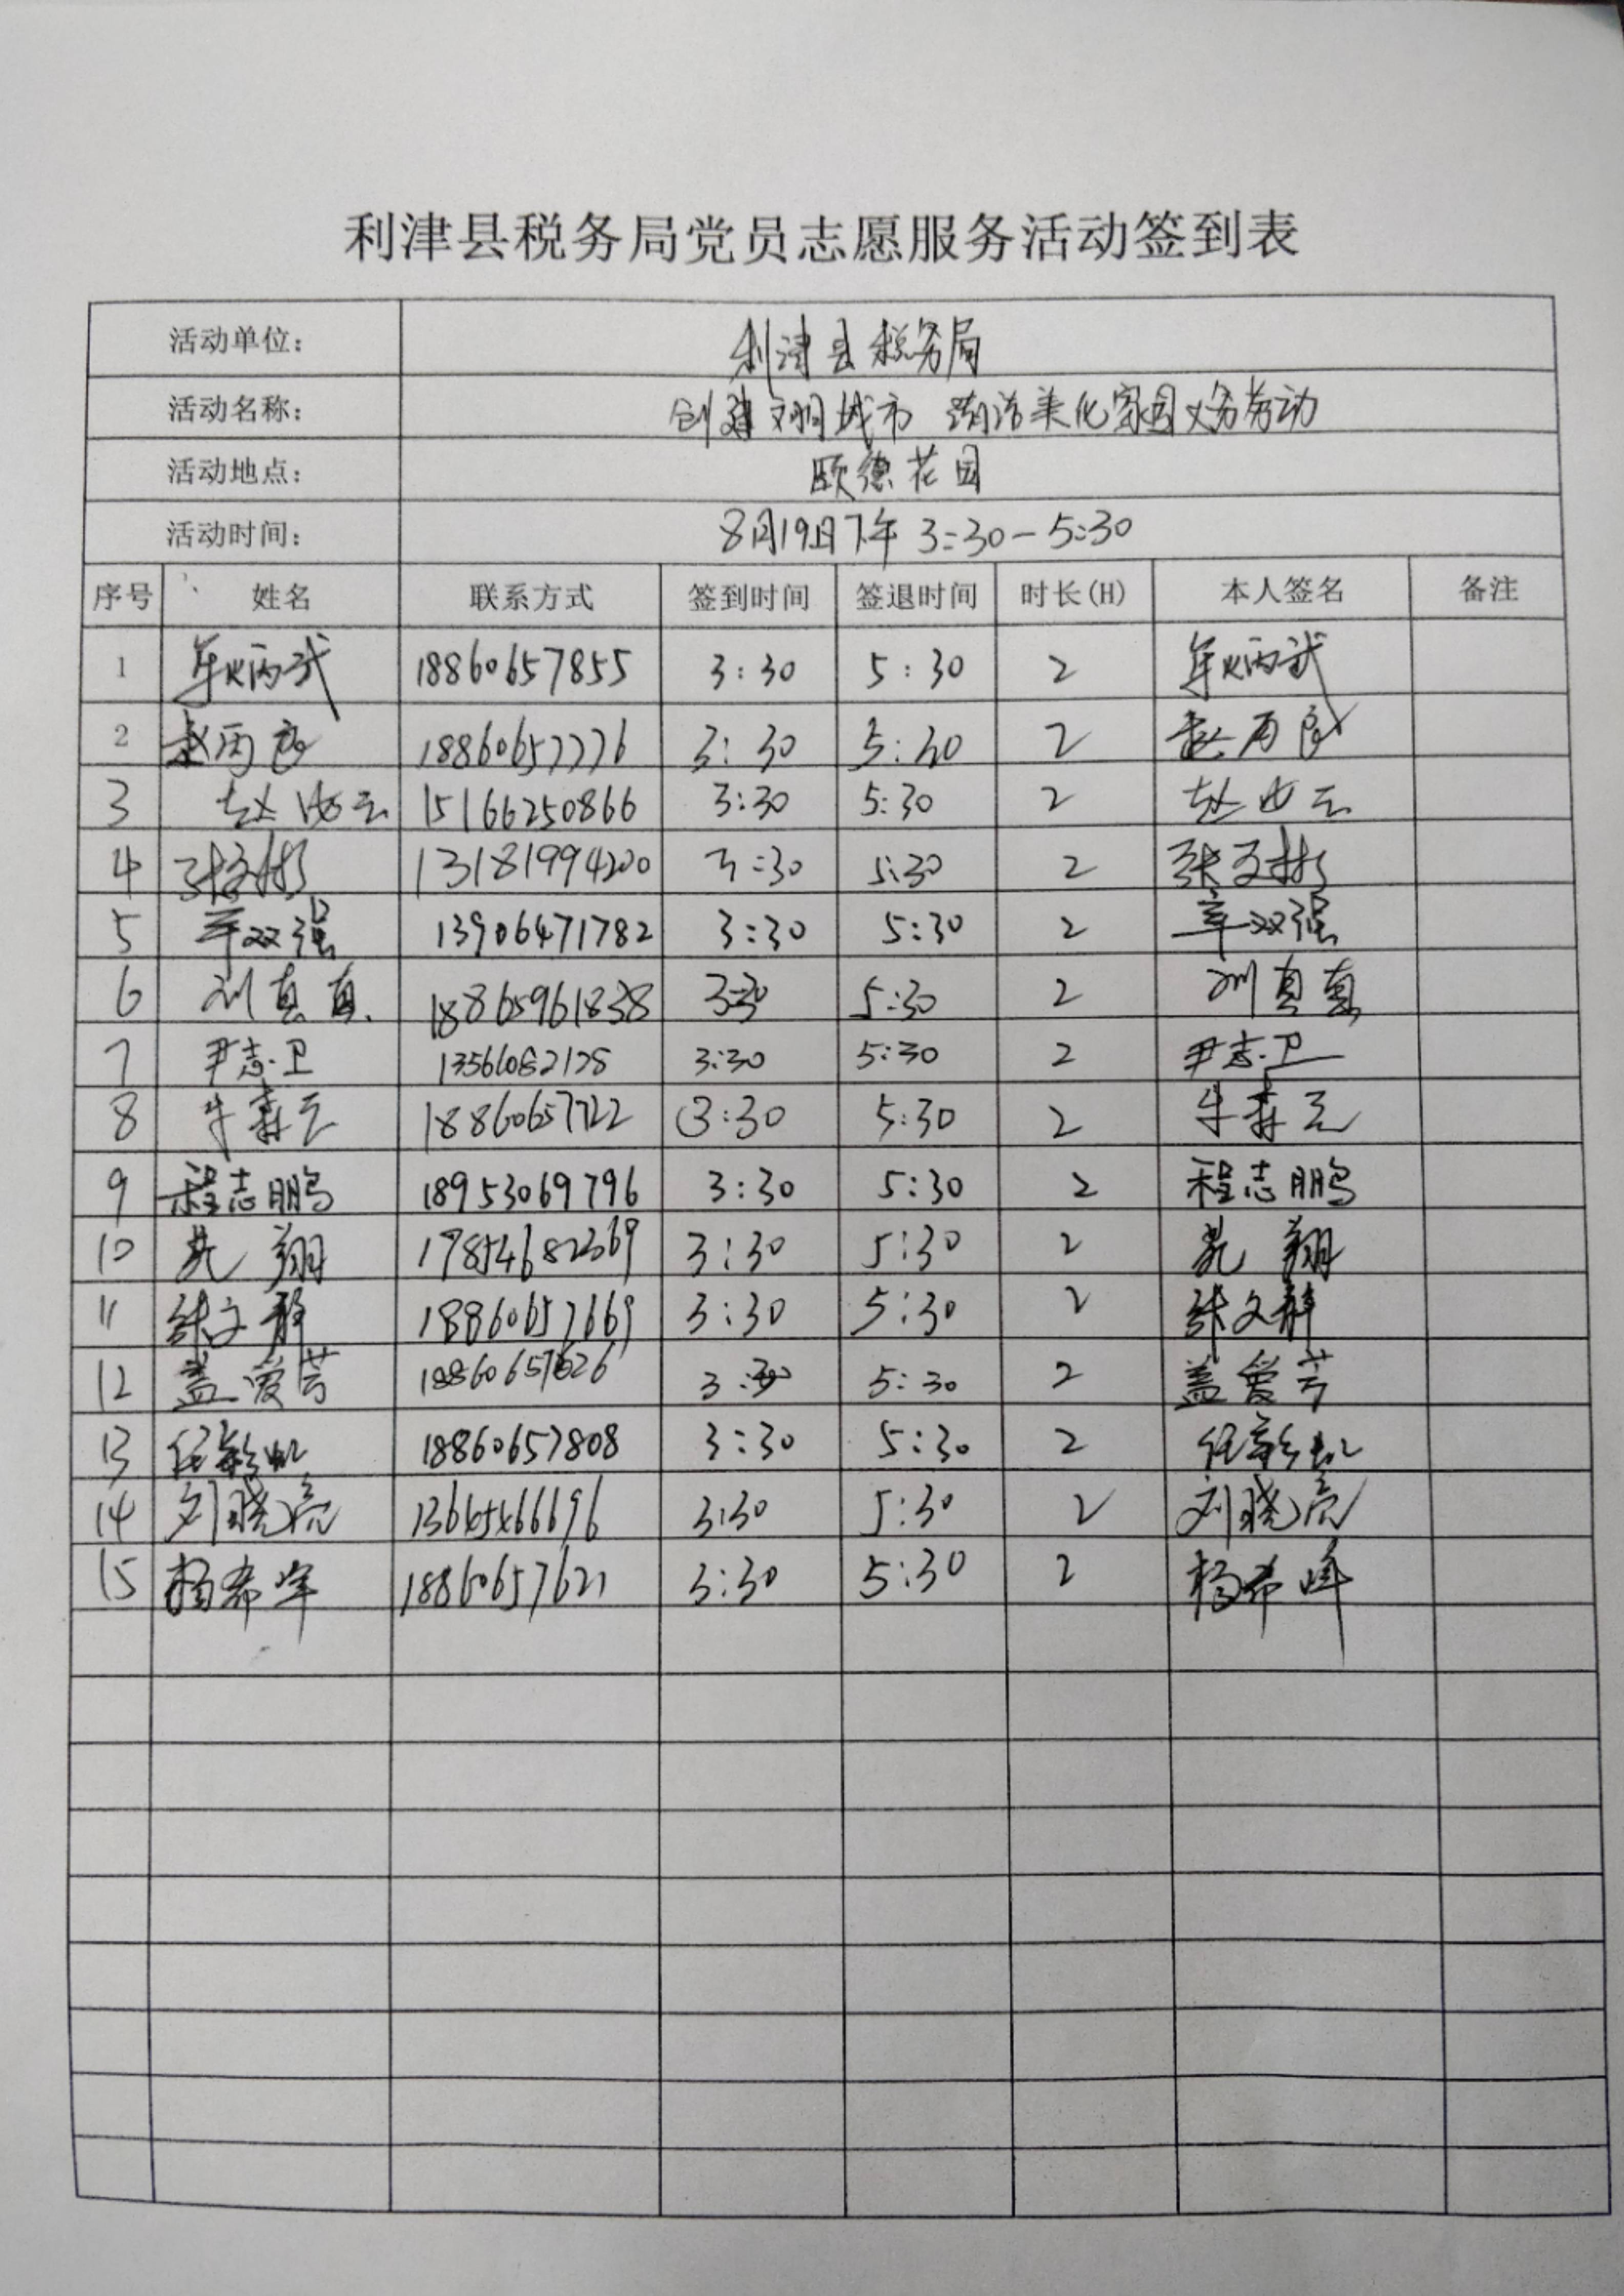 利津县税务局党员志愿服务活动签到表
活动单位： 利津县税务局
活动名称： 创建文明城市 清洁美化家园义务劳动
活动地点： 颐德花园
活动时间： 8月19日下午 3:30-5:30
序号 姓名 联系方式 签到时间 签退时间 时长(H) 本人签名 备注
1 牟炳武 18860657855 3:30 5:30 2 牟炳武
2 赵丙 18860657776 3:30 5:30 2 赵丙
3 赵 云 15166250866 3:30 5:30 2 赵 云
4 张文彬 13181994200 3:30 5:30 2 张文彬
5 双强 13906471782 3:30 5:30 2 双强
6 刘真真 18865961838 3:30 5:30 2 刘真真
7 尹志卫 3:30 5:30 2 尹志卫
8 牛森云 18860657722 3:30 5:30 2 牛森云
9 程志鹏 18953069796 3:30 5:30 2 程志鹏
10 翔 17854682369 3:30 5:30 2 翔
11 张文静 18860657669 3:30 5:30 2 张文静
12 盖爱芳 18860657626 3:30 5:30 2 盖爱芳
13 任 18860657808 3:30 5:30 2 任
14 刘晓亮 13645466696 3:30 5:30 2 刘晓亮
15 杨希峰 18860657621 3:30 5:30 2 杨希峰